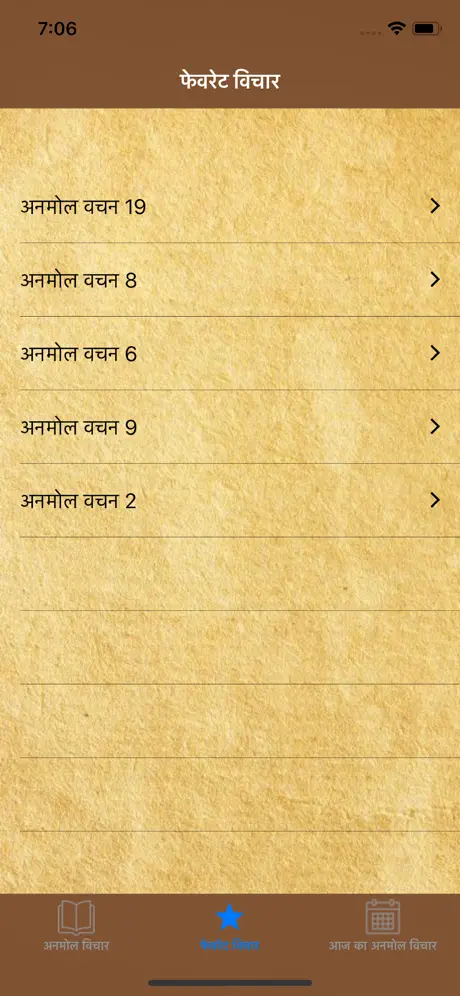 7:06
फेवरेट विचार
अनमोल वचन 19
अनमोल वचन 8
अनमोल वचन 6
अनमोल वचन 9
अनमोल वचन 2
अनमोल विचार
फेवरेट विचार
आज का अनमोल विचार